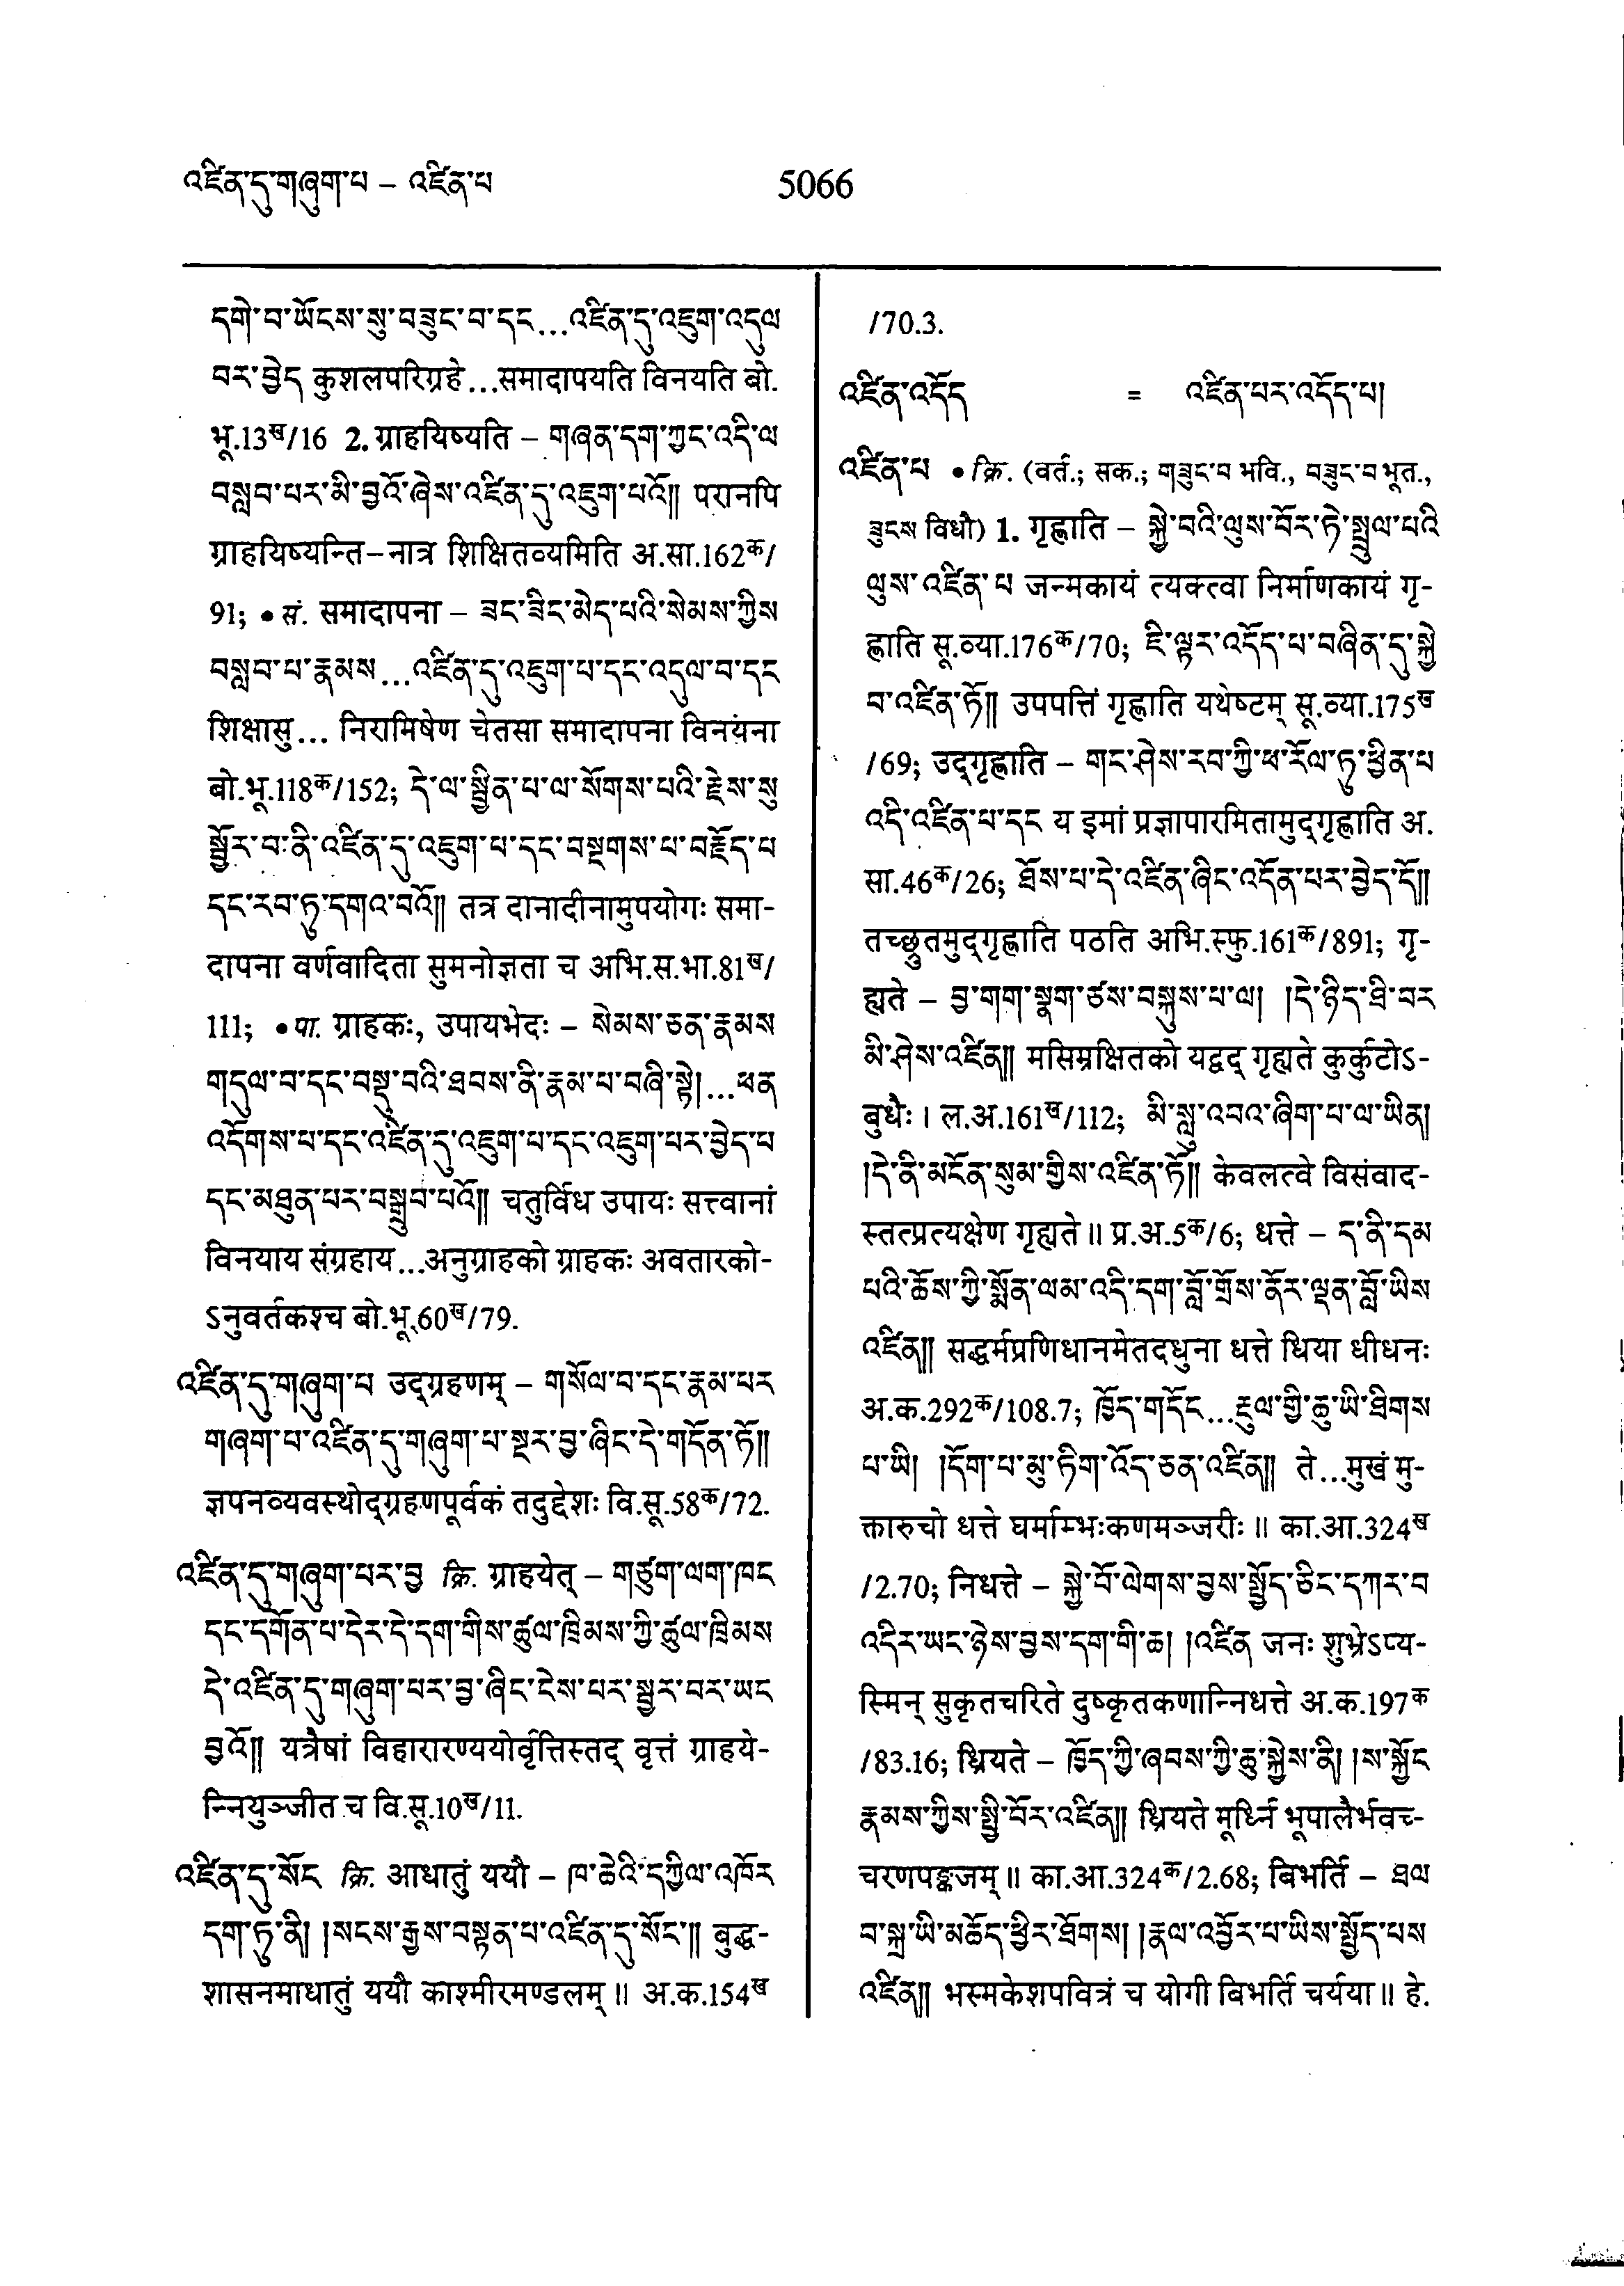 འཛིན་དུ་གཞུག་པ – འཛིན་པ
5066
དགེ་བ་ཡོངས་སུ་བཟུང་བ་དང...འཛིན་དུ་འཇུག་འདུལ
བར་བྱེད कुशलपरिग्रहे...समादापयति विनयति बो.
भू.13ख/16 2. ग्राहयिष्यति – གཞན་དག་ཀྱང་འདི་ལ
བསླབ་པར་མི་བྱའོ་ཞེས་འཛིན་དུ་འཇུག་པའོ།། परानपि
ग्राहयिष्यन्ति–नात्र शिक्षितव्यमिति अ.सा.162क/
91; • सं. समादापना – ཟང་ཟིང་མེད་པའི་སེམས་ཀྱིས
བསླབ་པ་རྣམས...འཛིན་དུ་འཇུག་པ་དང་འདུལ་བ་དང
शिक्षासु... निरामिषेण चेतसा समादापना विनयंना
बो.भू.118क/152; དེ་ལ་སྦྱིན་པ་ལ་སོགས་པའི་རྗེས་སུ
སྦྱོར་བ་ནི་འཛིན་དུ་འཇུག་པ་དང་བསྔགས་པ་བརྗོད་པ
དང་རབ་ཏུ་དགའ་བའོ།། तत्र दानादीनामुपयोगः समा-
दापना वर्णवादिता सुमनोज्ञता च अभि.स.भा.81ख/
111; • पा. ग्राहकः, उपायभेदः – སེམས་ཅན་རྣམས
གདུལ་བ་དང་བསྡུ་བའི་ཐབས་ནི་རྣམ་པ་བཞི་སྟེ།...ཕན
འདོགས་པ་དང་འཛིན་དུ་འཇུག་པ་དང་འཇུག་པར་བྱེད་པ
དང་མཐུན་པར་བསྒྲུབ་པའོ།། चतुर्विध उपायः सत्त्वानां
विनयाय संग्रहाय...अनुग्राहको ग्राहकः अवतारको-
ऽनुवर्तकश्च बो.भू.60ख/79.
འཛིན་དུ་གཞུག་པ उद्ग्रहणम् – གསོལ་བ་དང་རྣམ་པར
གཞག་པ་འཛིན་དུ་གཞུག་པ་སྔར་བྱ་ཞིང་དེ་གདོན་ཏོ།།
ज्ञपनव्यवस्थोद्ग्रहणपूर्वकं तदुद्देशः वि.सू.58क/72.
འཛིན་དུ་གཞུག་པར་བྱ क्रि. ग्राहयेत् – གཙུག་ལག་ཁང
དང་དགོན་པ་དེར་དེ་དག་གིས་ཚུལ་ཁྲིམས་ཀྱི་ཚུལ་ཁྲིམས
དེ་འཛིན་དུ་གཞུག་པར་བྱ་ཞིང་ངེས་པར་སྦྱར་བར་ཡང
བྱའོ།། यत्रैषां विहारारण्ययोर्वृत्तिस्तद् वृत्तं ग्राहये-
न्नियुञ्जीत च वि.सू.10ख/11.
འཛིན་དུ་སོང क्रि. आधातुं ययौ – ཁ་ཆེའི་དཀྱིལ་འཁོར
དག་ཏུ་ནི། །སངས་རྒྱས་བསྟན་པ་འཛིན་དུ་སོང་།། बुद्ध-
शासनमाधातुं ययौ काश्मीरमण्डलम् ॥ अ.क.154ख
/70.3.
འཛིན་འདོད = འཛིན་པར་འདོད་པ།
འཛིན་པ • क्रि. (वर्त.; सक.; གཟུང་བ भवि., བཟུང་བ भूत.,
ཟུངས विधौ) 1. गृह्णाति – སྐྱེ་བའི་ལུས་བོར་ཏེ་སྤྲུལ་པའི
ལུས་འཛིན་པ जन्मकायं त्यक्त्वा निर्माणकायं गृ-
ह्णाति सू.व्या.176क/70; ཇི་ལྟར་འདོད་པ་བཞིན་དུ་སྐྱེ
བ་འཛིན་ཏོ།། उपपत्तिं गृह्णाति यथेष्टम् सू.व्या.175ख
/69; उद्गृह्णाति – གང་ཤེས་རབ་ཀྱི་ཕ་རོལ་ཏུ་ཕྱིན་པ
འདི་འཛིན་པ་དང य इमां प्रज्ञापारमितामुद्गृह्णाति अ.
सा.46क/26; ཐོས་པ་དེ་འཛིན་ཞིང་འདོན་པར་བྱེད་དོ།།
तच्छ्रुतमुद्गृह्णाति पठति अभि.स्फु.161क/891; गृ-
ह्यते – བྱ་གག་སྣག་ཙས་བསྐུས་པ་ལ། །དེ་ཉིད་ཐི་བར
མི་ཤེས་འཛིན།། मसिम्रक्षितको यद्वद् गृह्यते कुर्कुटोऽ-
बुधैः । ल.अ.161ख/112; མི་སླུ་འབའ་ཞིག་པ་ལ་ཡིན།
།དེ་ནི་མངོན་སུམ་གྱིས་འཛིན་ཏོ།། केवलत्वे विसंवाद-
स्तत्प्रत्यक्षेण गृह्यते ॥ प्र.अ.5क/6; धत्ते – ད་ནི་དམ
པའི་ཆོས་ཀྱི་སྨོན་ལམ་འདི་དག་བློ་གྲོས་ནོར་ལྡན་བློ་ཡིས
འཛིན།། सद्धर्मप्रणिधानमेतदधुना धत्ते धिया धीधनः
अ.क.292क/108.7; ཁྱོད་གདོང...རྡུལ་གྱི་ཆུ་ཡི་ཐིགས
པ་ཡི། །དོག་པ་མུ་ཏིག་འོད་ཅན་འཛིན།། ते...मुखं मु-
क्तारुचो धत्ते घर्माम्भःकणमञ्जरीः ॥ का.आ.324ख
/2.70; निधत्ते – སྐྱེ་བོ་ལེགས་བྱས་སྤྱོད་ཅིང་དཀར་བ
འདིར་ཡང་ཉེས་བྱས་དག་གི་ཆ། །འཛིན जनः शुभ्रेऽप्य-
स्मिन् सुकृतचरिते दुष्कृतकणान्निधत्ते अ.क.197क
/83.16; ध्रियते – ཁྱོད་ཀྱི་ཞབས་ཀྱི་ཆུ་སྐྱེས་ནི། །ས་སྐྱོང
རྣམས་ཀྱིས་སྤྱི་བོར་འཛིན།། ध्रियते मूर्ध्नि भूपालैर्भवच्-
चरणपङ्कजम् ॥ का.आ.324क/2.68; बिभर्ति – ཐལ
བ་སྐྲ་ཡི་མཆོད་ཕྱིར་ཐོགས། །རྣལ་འབྱོར་པ་ཡིས་སྤྱོད་པས
འཛིན།། भस्मकेशपवित्रं च योगी बिभर्ति चर्यया ॥ हे.